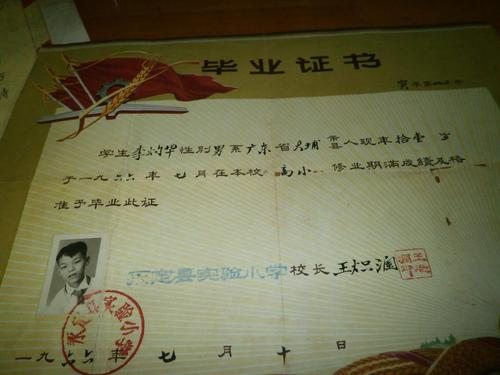 毕业证书
学生李灼华性别男系广东省大埔县人现年拾壹岁
于一九六六年七月在本校高小修业期满成绩及格
准予毕业此证
永定县实验小学校长王炽涵
永定县实验小学
一九六六年七月十日